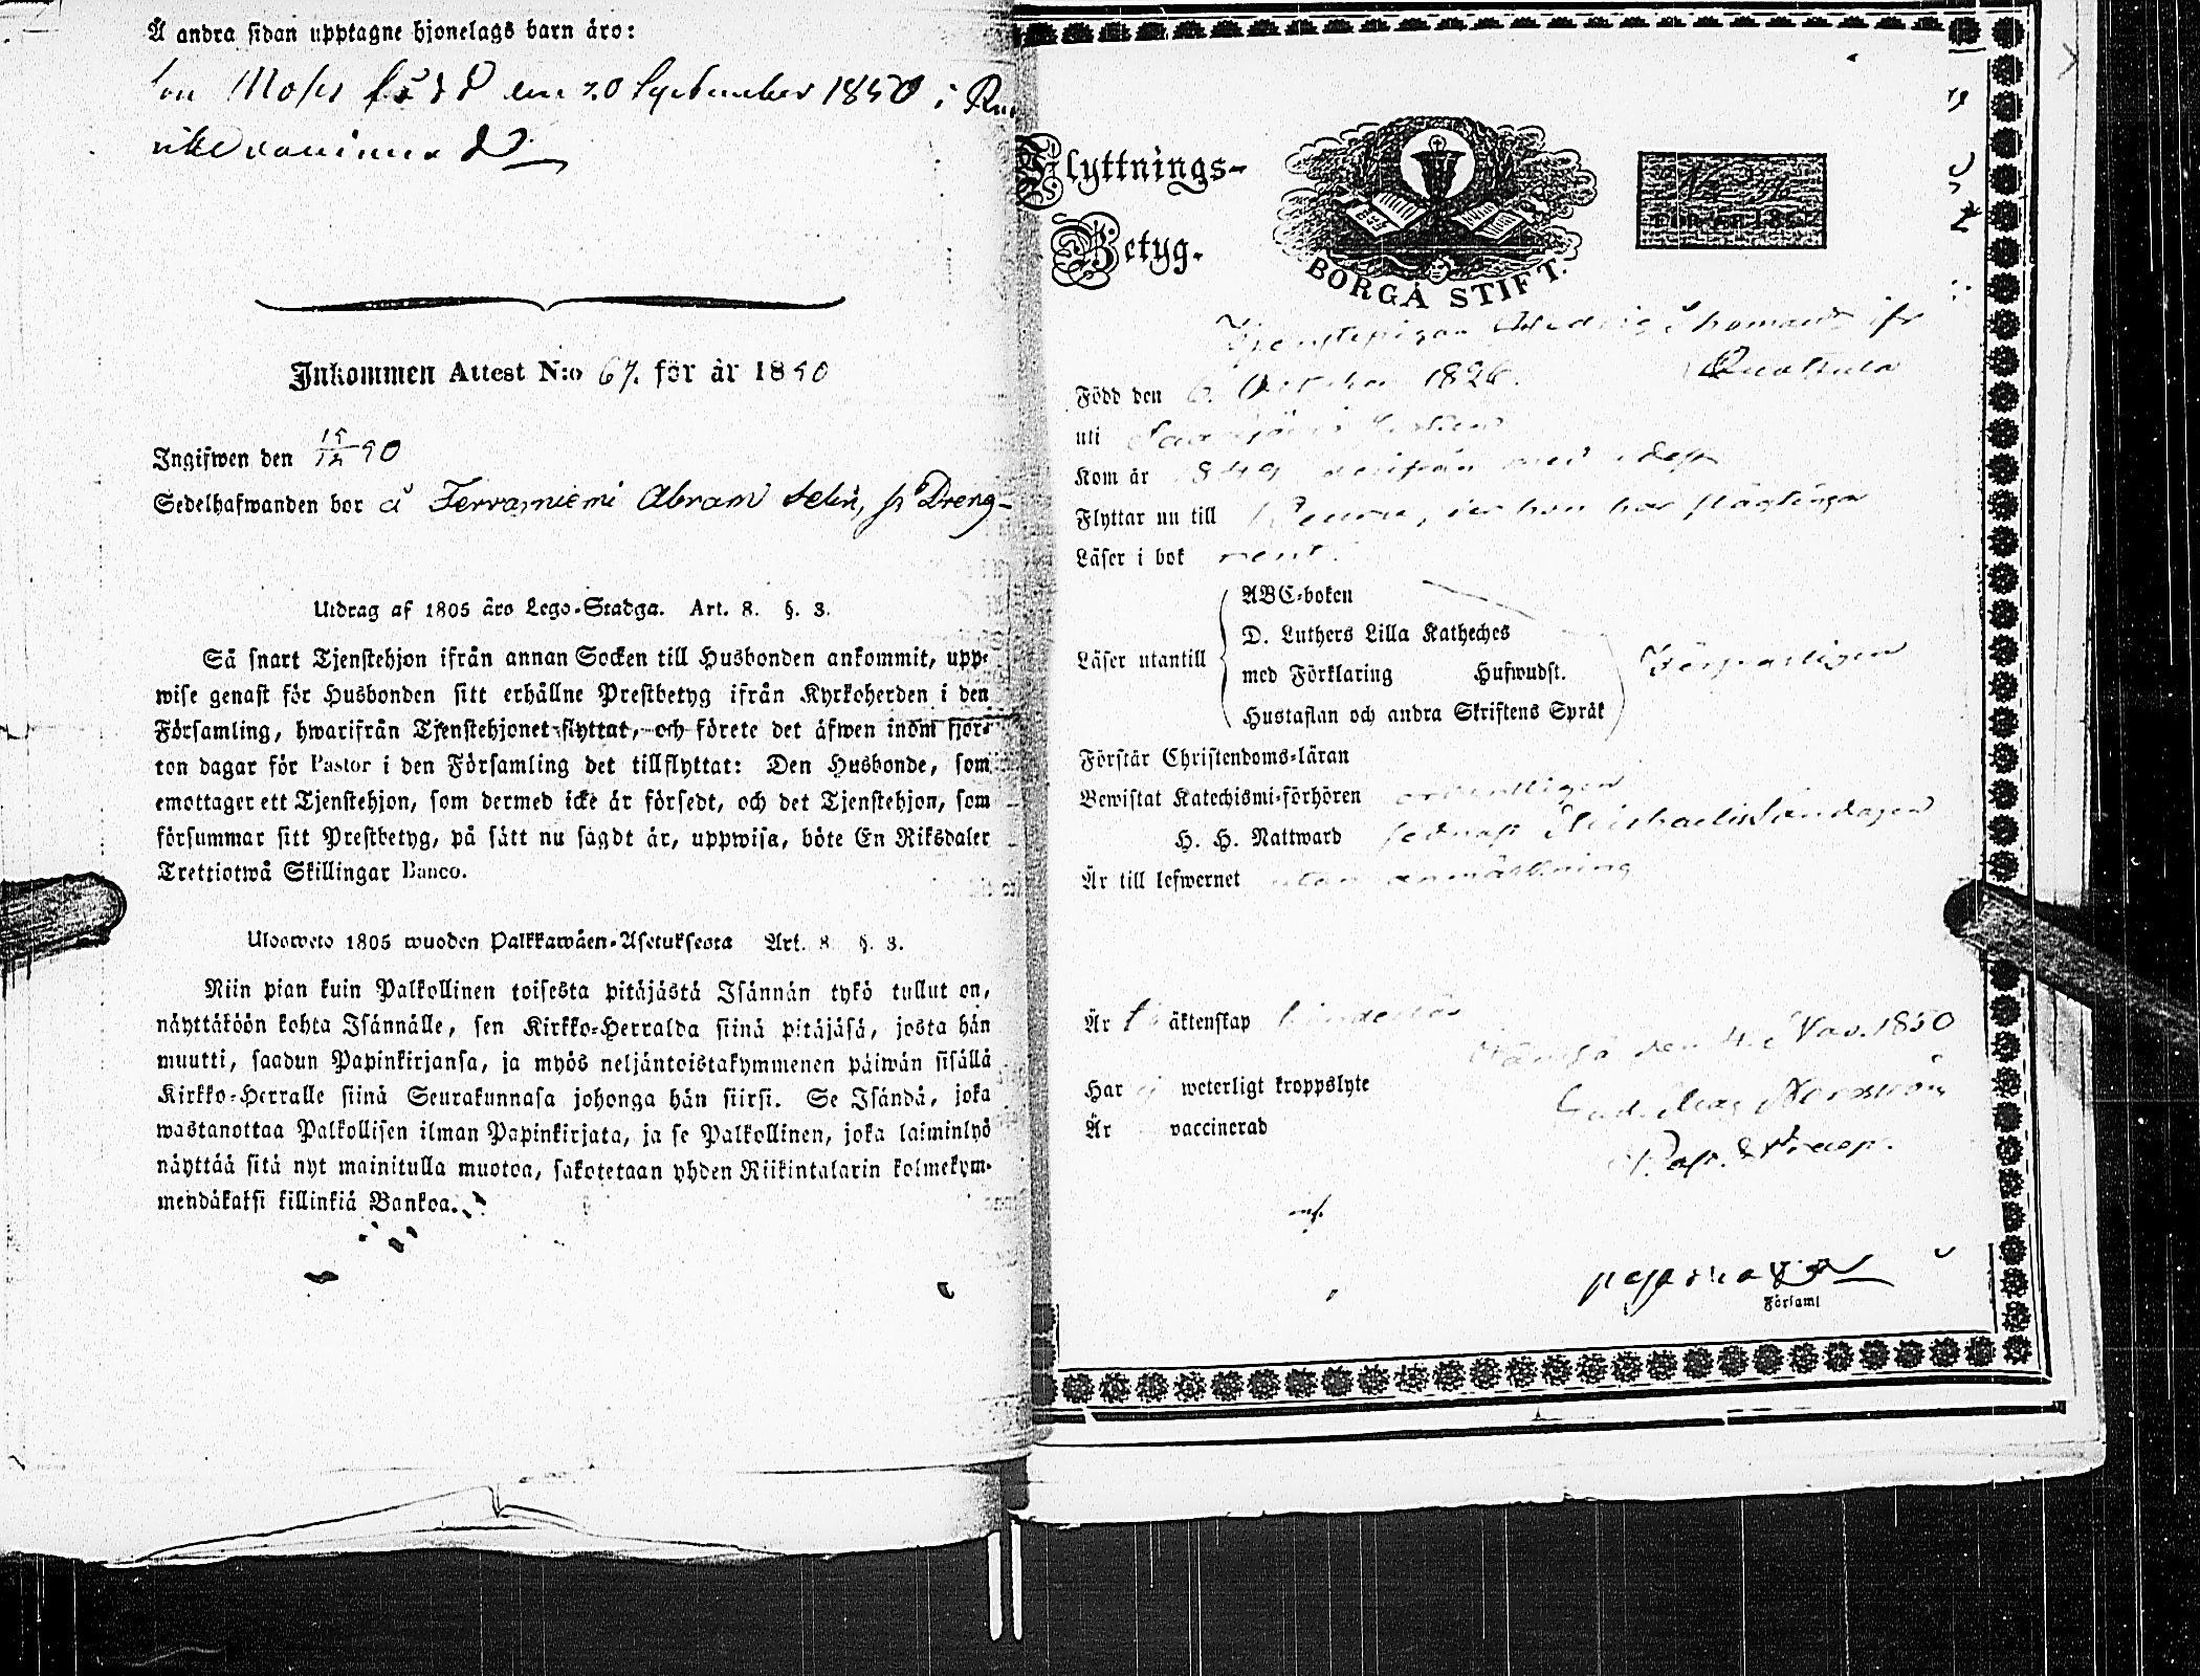 Å andra sidan upptagne hjonelags barn äro:
son Moses född den 20 September 1850 i
Inkommen Attest N:o 67. för år 1850
Ingifwen den 15/12 50
Sedelhafwanden bor å Terraniemi Abram
Utdrag af 1805 års Lego-Stadga. Art. 8. §. 3.
Så snart Tjenstehjon ifrån annan Socken till Husbonden ankommit, upp-
wise genast för Husbonden sitt erhållne Prestbetyg ifrån Kyrkoherden i den
Församling, hwarifrån Tjenstehjonet flyttat, och förete det äfwen inom fjor-
ton dagar för Pastor i den Församling det tillflyttat: Den Husbonde, som
emottager ett Tjenstehjon, som dermed icke är försedt, och det Tjenstehjon, som
försummar sitt Prestbetyg, på sätt nu sagdt är, uppwisa, böte En Riksdaler
Trettiotwå Skillingar Banco.
Ulosweto 1805 wuoden Palkkawäen-Asetuksesta Art. 8 §. 3.
Niin pian kuin Palkollinen toisesta pitäjästä Isännän tykö tullut on,
näyttäköön kohta Isännälle, sen Kirkko-Herralda siinä pitäjäsä, josta hän
muutti, saadun Papinkirjansa, ja myös neljäntoistakymmenen päiwän sisällä
Kirkko-Herralle siinä Seurakunnasa johonga hän siirsi. Se Isändä, joka
wastanottaa Palkollisen ilman Papinkirjata, ja se Palkollinen, joka laiminlyö
näyttää sitä nyt mainitulla muotoa, sakotetaan yhden Riikintalarin kolmekym-
mendäkaksi killinkiä Bankoa.
Flyttnings-
Betyg.
BORGÅ STIFT.
Tjenstepigan Hedvig Thomasd. ifr
Född den 6. October 1826.
uti
Kom år 1849 derifrån med
Flyttar nu till der hon har slägtingar
Läser i bok rent.
Läser utantill
ABC-boken
D. Luthers Lilla Katheches
med Förklaring Hufwudst.
Hustaflan och andra Skriftens Språk
Förswarligen
Förstår Christendoms-läran
Bewistat Katechismi-förhören ordentligen
H. H. Nattward sednast Michaelis Söndagen
Är till lefwernet utan anmärkning
Är till äktenskap hinderlös
Jämsä den 4. Nov. 1850
Har ej weterligt kroppslyte
Är vaccinerad
Past. & Præp.
Församl